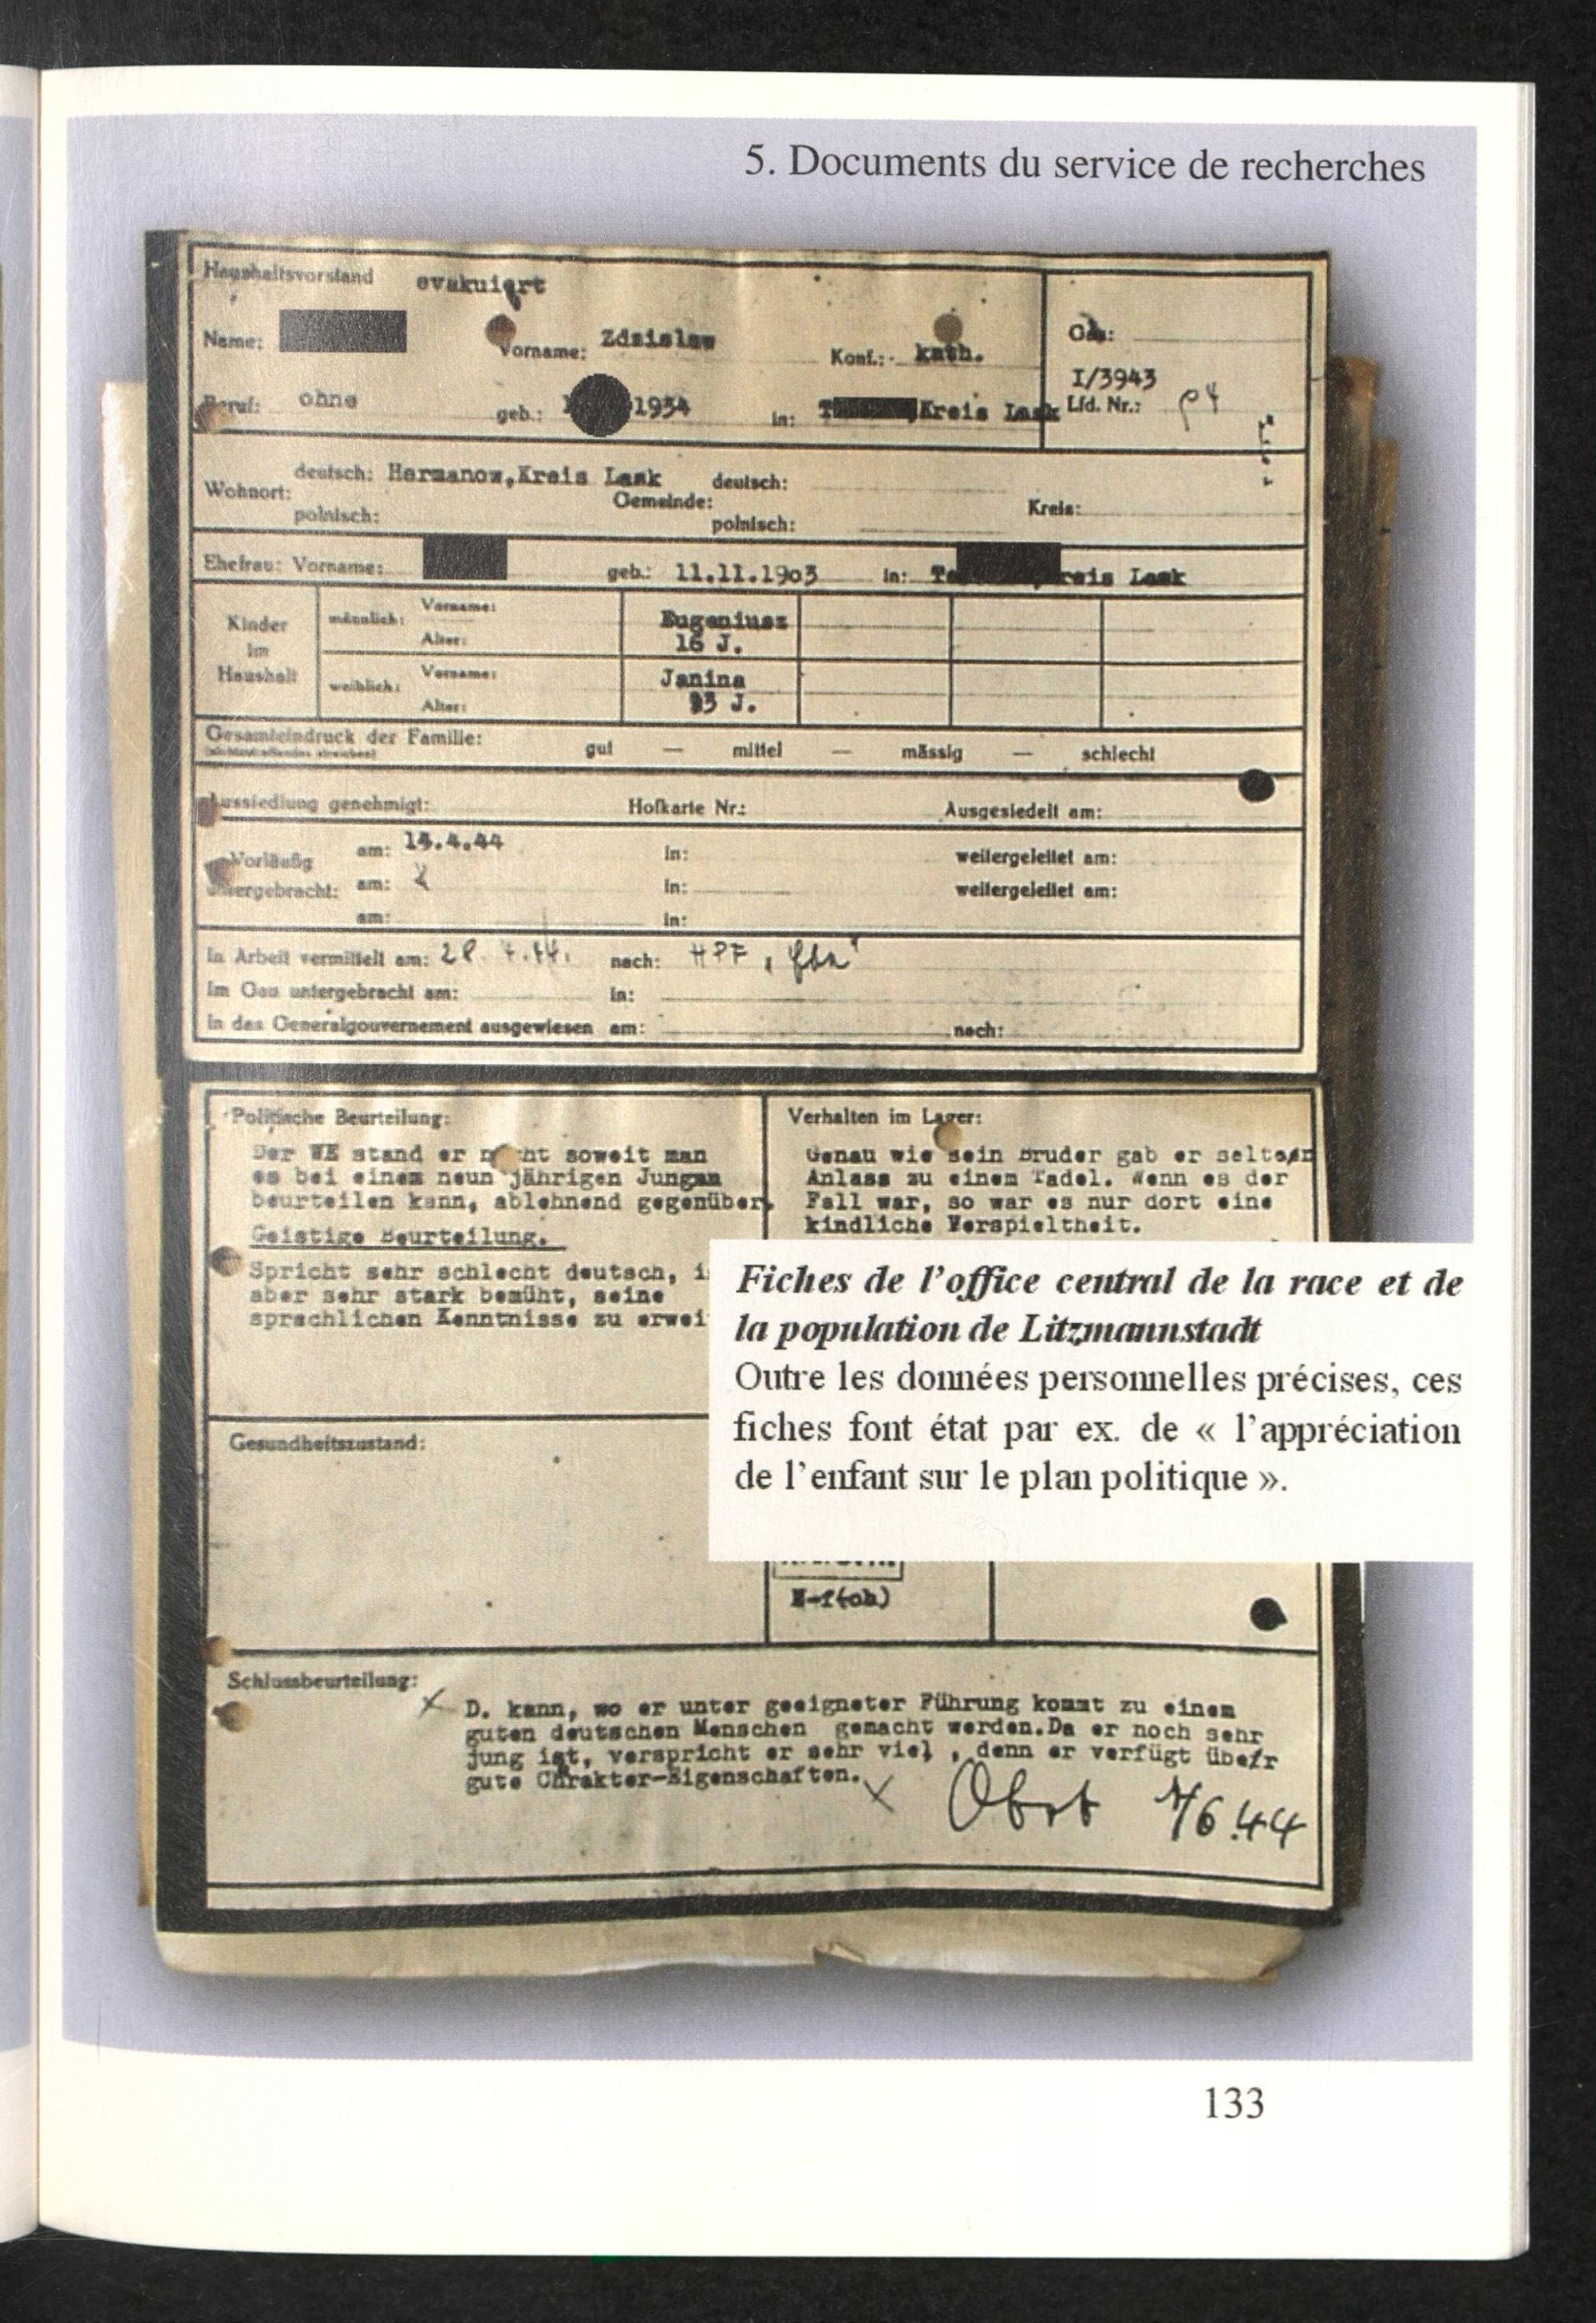 5. Documents du service de recherches
Haushaltsvorstand evakuiert
Name: Vorname: Zdzislaw Konf.: kath.
Beruf: ohne geb.: 1934 in: T Kreis Lask
I/3943
Lfd. Nr.:
Wohnort: deutsch: Hermanow, Kreis Lask deutsch:
Gemeinde: Kreis:
polnisch: polnisch:
Ehefrau: Vorname: geb.: 11.11.1903 in: Kreis Lask
Kinder im Haushalt
männlich: Vorname: Eugeniusz
Alter: 16 J.
weiblich: Vorname: Janina
Alter: 13 J.
Gesamteindruck der Familie: gut — mittel — mässig — schlecht
Aussiedlung genehmigt: Hofkarte Nr.: Ausgesiedelt am:
Vorläufig untergebracht: am: 14.4.44 in: weitergeleitet am:
am: in: weitergeleitet am:
am: in:
In Arbeit vermittelt am: nach:
Im Gau untergebracht am: in:
In das Generalgouvernement ausgewiesen am: nach:
Politische Beurteilung:
Der WE stand er nicht soweit man
es bei einem neun jährigen Jungen
beurteilen kann, ablehnend gegenüber.
Geistige Beurteilung.
Spricht sehr schlecht deutsch,
aber sehr stark bemüht, seine
sprachlichen Kenntnisse zu erwei
Verhalten im Lager:
Genau wie sein Bruder gab er selten
Anlass zu einem Tadel. Wenn es der
Fall war, so war es nur dort eine
kindliche Verspieltheit.
Fiches de l'office central de la race et de
la population de Litzmannstadt
Outre les données personnelles précises, ces
fiches font état par ex. de « l'appréciation
de l'enfant sur le plan politique ».
Gesundheitszustand:
Schlussbeurteilung:
D. kann, wo er unter geeigneter Führung kommt zu einem
guten deutschen Menschen gemacht werden.Da er noch sehr
jung ist, verspricht er sehr viel, denn er verfügt über
gute Chrakter-Eigenschaften.
133